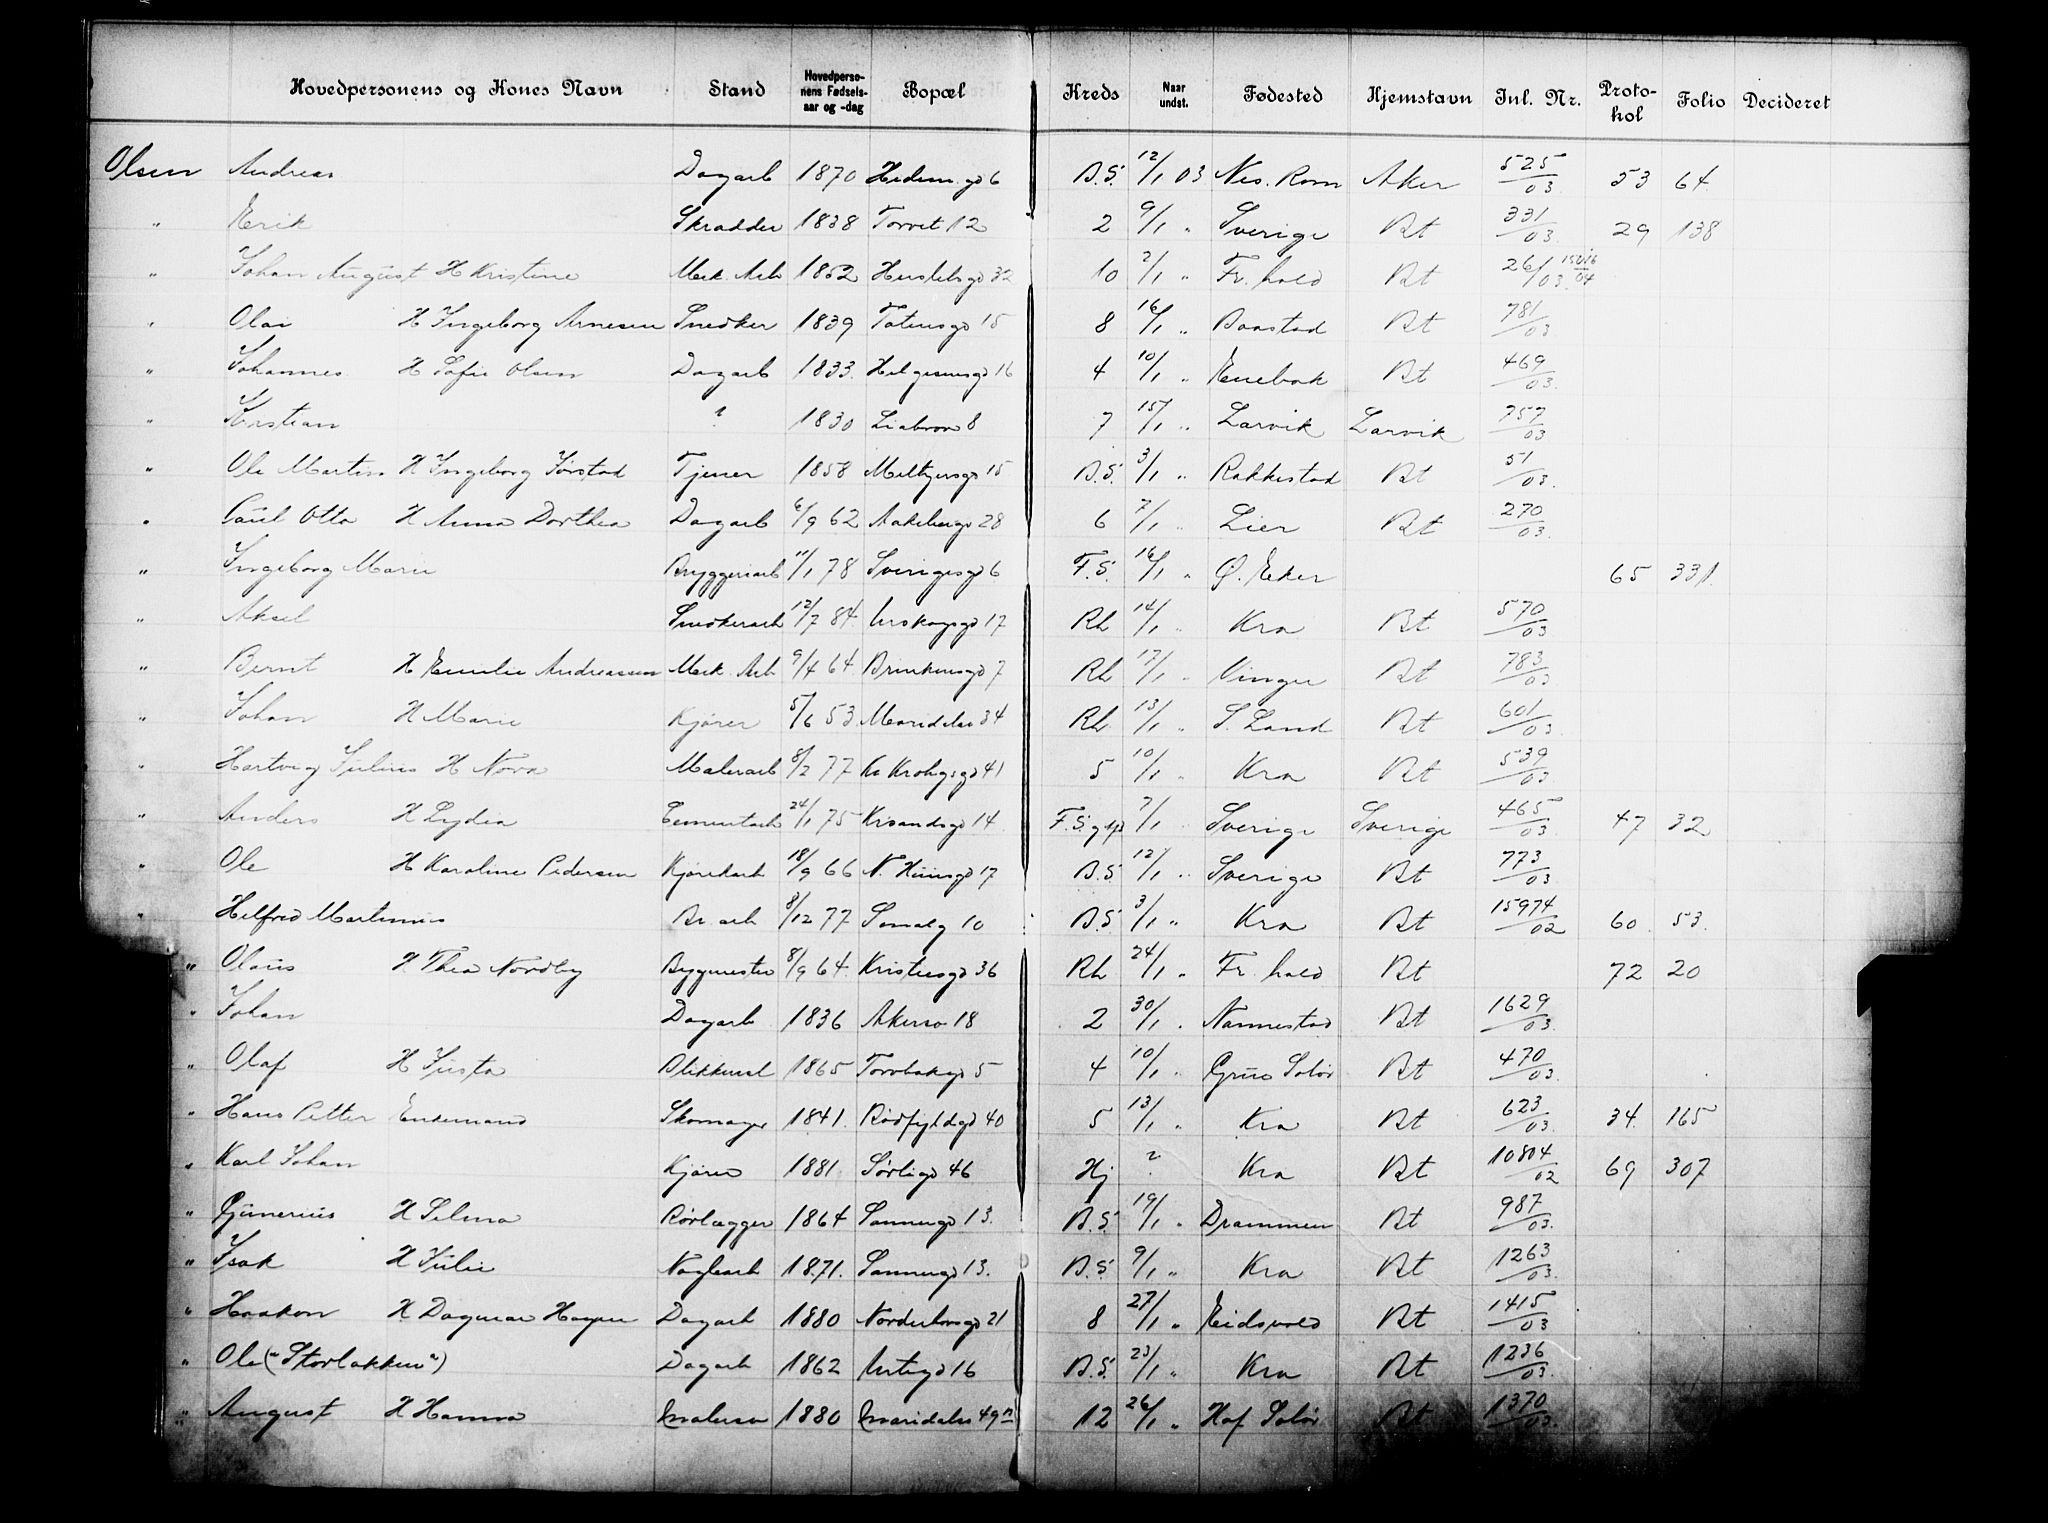 Hovedpersonens og Kones Navn Stand Hovedperso-nens Fødsels-aar og -dag Bopæl Kreds Naar undst. Fødested Hjemstavn Inl. Nr. Proto-kol Folio Decideret
Olsen Andreas Dagarb 1870 Hedem.gd 6 B.S. 12/1 03 Nes. Rom Aker 525/03 53 64
" Erik Skradder 1838 Torvet 12 2 9/1 " Sverige Bt 331/03 29 138
" Johan August H Kristine Mek. Arb 1852 32 10 2/1 " Fr. hald Bt 26/03
" Olai H Ingeborg Arnesen Snedker 1839 Totensgd 15 8 16/1 " Baastad Bt 781/03
" Johannes H Sofie Olsen Dagarb 1833 Helgesensgd 16 4 10/1 " Enebak Bt 469/03
" Kristian ? 1830 Liabroa 8 7 15/1 " Larvik Larvik 757/03
" Ole Martin H Ingeborg Tjener 1858 Meltzersgd 15 B.S. 3/1 " Rakkestad Bt 51/03
" Carl Otto H Anna Dorthea Dagarb 6/9 62 Aakebergv 28 6 7/1 " Lier Bt 270/03
" Ingeborg Marie Bryggeriarb 11/1 78 Sverigesgd 6 F.S. 16/1 " Ø. Eker 65 331
" Aksel Snedkerarb 12/7 84 Urskougsgd 17 Rh 14/1 " Kra Bt 570/03
" Bernt H Emilie Andreassen Mek. Arb 9/4 64 Brinkensgd 7 Rh 17/1 " Vinger Bt 783/03
" Johan H Marie Kjører 5/6 53 Maridalsv 34 Rh 13/1 " S. Land Bt 601/03
" Hartvig Julius H Nora Malerarb 8/2 77 Kr Krohgsgd 41 5 10/1 " Kra Bt 539/03
" Anders H Lydia Cementarb 24/1 75 Krsandsgd 14 7/1 Sverige Sverige 465/03 47 32
" Ole H Karoline Pedersen Kjørekarl 18/9 66 N. Hūusgd 17 B.S. 12/1 " Sverige Bt 773/03
" Helfred Martinius Br. arb 8/12 77 10 B.S. 3/1 " Kra Bt 15974/02 60 53
" Olaus H Thea Nordby Bygmester 8/9 64 Kristiesgd 36 Rh 24/1 " Fr. hald Bt 72 20
" Johan Dagarb 1836 Akersv 18 2 30/1 " Nannestad Bt 1629/03
" Olaf H Justa Blikkensl 1865 Torvbakgd 5 4 10/1 " Grue Solør Bt 470/03
" Hans Petter Enkemand Skomager 1841 Rødfyldgd 40 5 13/1 " Kra Bt 623/03 34 165
" Karl Johan Kjører 1881 Sørligd 46 Hj ? Kra Bt 10804/02 69 307
" Gunerius H Selma Rørlægger 1864 Sannergd 13 B.S. 19/1 " Drammen Bt 987/03
" Isak H Julie Naglearb 1871 Sannergd 13 B.S. 9/1 " Kra Bt 1263/03
" Haakon H Dagmar Hagen Dagarb 1880 Norderhovsgd 21 8 27/1 " Eidsvold Bt 1415/03
" Ole ("Storbakken") Dagarb 1862 Urtegd 16 B.S. 23/1 " Kra Bt 1236/03
" August H Hanna Malersv 1880 Maridalsv 49 12 26/1 " Hof Solør Bt 1370/03